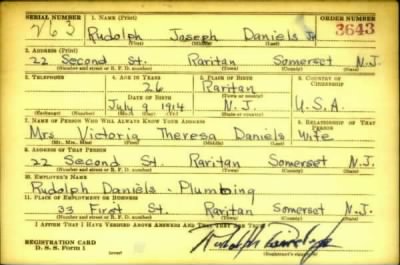 SERIAL NUMBER 1. NAME (Print) ORDER NUMBER
V63 Rudolph Joseph Daniels Jr 3643
(First) (Middle) (Last)
2. ADDRESS (Print)
22 Second St. Raritan Somerset N.J.
(Number and street or R. F. D. number) (Town) (County) (State)
3. TELEPHONE 4. AGE IN YEARS 5. PLACE OF BIRTH 6. COUNTRY OF CITIZENSHIP
26 Raritan
DATE OF BIRTH (Town or county)
July 9 1914 N.J. U.S.A.
(Exchange) (No.) (Mo.) (Day) (Yr.) (State or country)
7. NAME OF PERSON WHO WILL ALWAYS KNOW YOUR ADDRESS 8. RELATIONSHIP OF THAT PERSON
Mrs. Victoria Theresa Daniels Wife
(Mr., Mrs., Miss) (First) (Middle) (Last)
9. ADDRESS OF THAT PERSON
22 Second St. Raritan Somerset N.J.
(Number and street or R. F. D. number) (Town) (County) (State)
10. EMPLOYER'S NAME
Rudolph Daniels - Plumbing
11. PLACE OF EMPLOYMENT OR BUSINESS
33 First St Raritan Somerset N.J.
(Number and street or R. F. D. number) (Town) (County) (State)
I AFFIRM THAT I HAVE VERIFIED ABOVE ANSWERS AND THAT THEY ARE TRUE
REGISTRATION CARD
D. S. S. Form 1 (Registrant's signature)